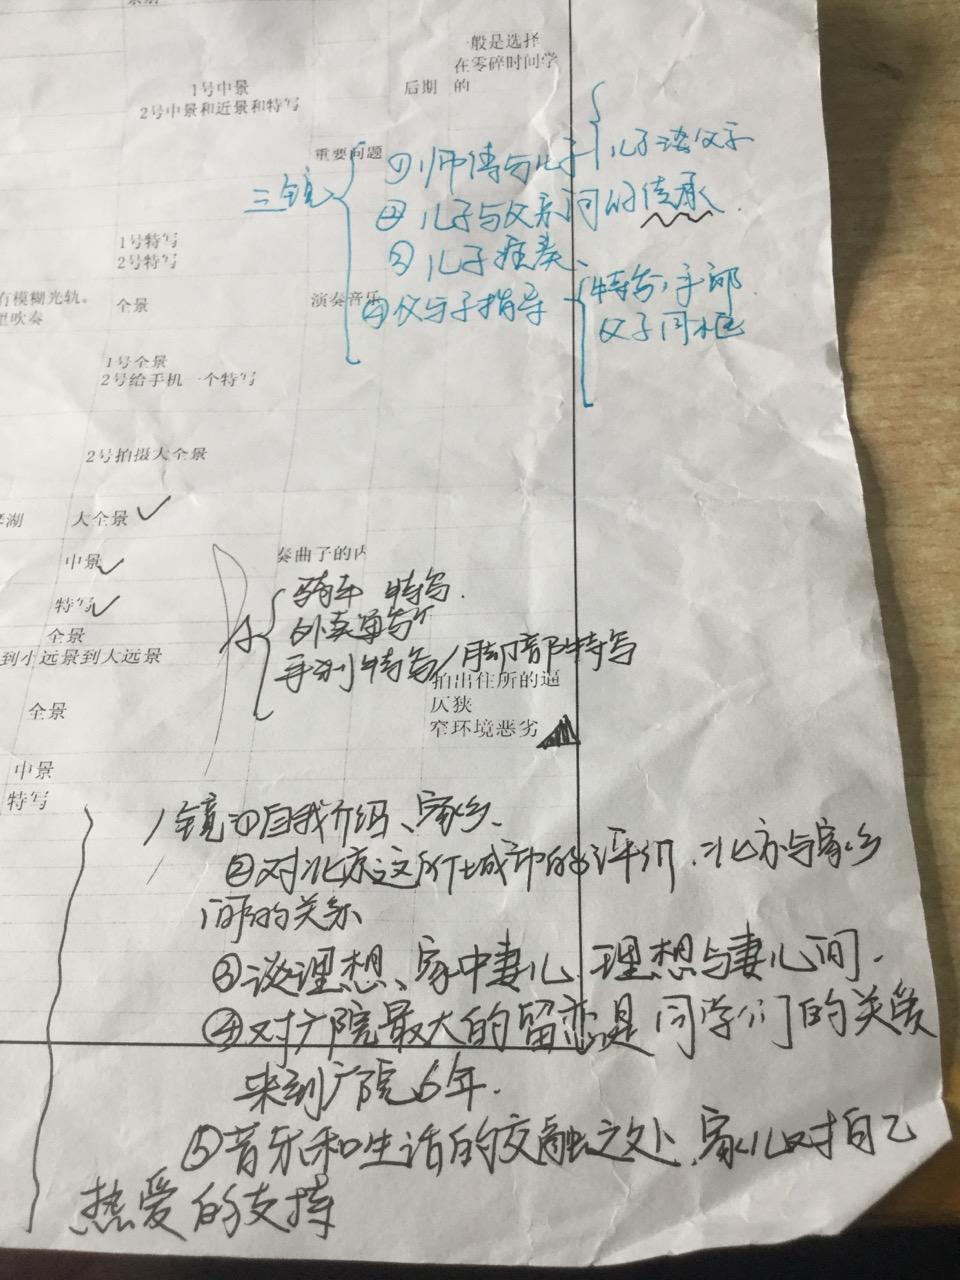 一般是选择
在零碎时间学
后期 的
1号中景
2号中景和近景和特写
重要问题
三镜
①师傅与儿子
儿子谈父子
②儿子与父亲间的传承
1号特写
2号特写
③儿子演奏、
有模糊光轨。
里吹奏
全景
演奏音乐
④父与子指导
特写:手部
父子同框
1号全景
2号给手机一个特写
2号拍摄大全景
大全景
中景
奏曲子的内
骑车 特写.
特写
外卖
全景
到小远景到大远景
特写/脚部特写
全景
拍出住所的逼
仄狭
窄环境恶劣
中景
特写
1镜:①自我介绍、家乡、
②对北京这所城市的评价.北京与家乡
间的关系
③谈理想、家中妻儿.理想与妻儿间.
④对广院最大的留恋是同学们的关爱
来到广院6年.
⑤音乐和生活的交融之处、家儿对自己
热爱的支持